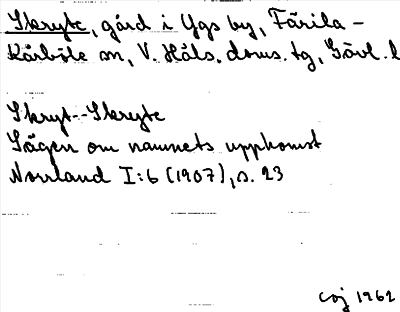 Skryte, gård i Ygs by, Färila-
Kårböle sn, V. Häls. doms. tg, Gävl. l
Skryt--Skryte
Sägen om namnets uppkomst
Norrland I:6 (1907), s. 23
Coj 1962